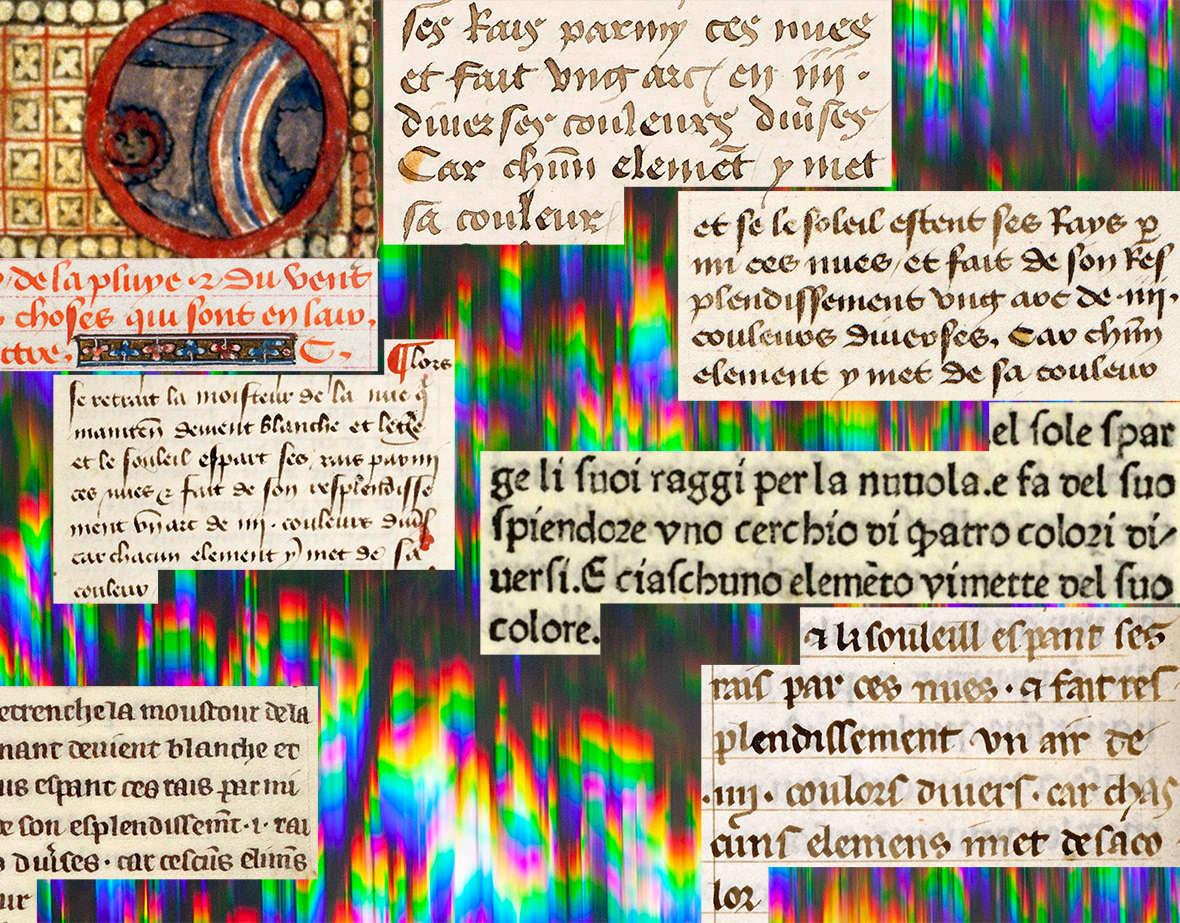 ses Rais parmy ces nues
et fait vng arc en iiii ·
diuerses couleurs diũses
Car chũn elemẽt y met
sa couleur
et se le soleil estent ses Rays ꝑ
mi ces nues et fait de son Res
plendissement vng arc de · iiii ·
couleurs diuerses. Car chũn
element y met de sa couleur
de la pluye ⁊ du vent
choses qui sont en lair,
ctre,
C.
¶ lors
se retrait la moisteur de la nue q̃
mainteñ deuient blanche et legẽ
et le souleil espart ses rais parmi
ces nues ⁊ fait de son resplendisse
ment vn arc de iiii · couleurs diũs
car chacun element y met de sa
couleur
el sole spar
ge li suoi raggi per la nuuola.e fa del suo
spiendore vno cerchio di q̃atro colori di/
uersi.E ciaschuno elemẽto vimette del suo
colore.
⁊ li souleill espant ses
rais par ces nues · ⁊ fait res
plendissement vn air de
· iiii · coulors diuers · car chas
cuns elemens imet de saco
lor
etrenche la moustour de la
nant deuient blanche et
us espant ces rais parmi
e son esplendissem̃t · i · rai
s diũses · car cescũs elimẽs
ur